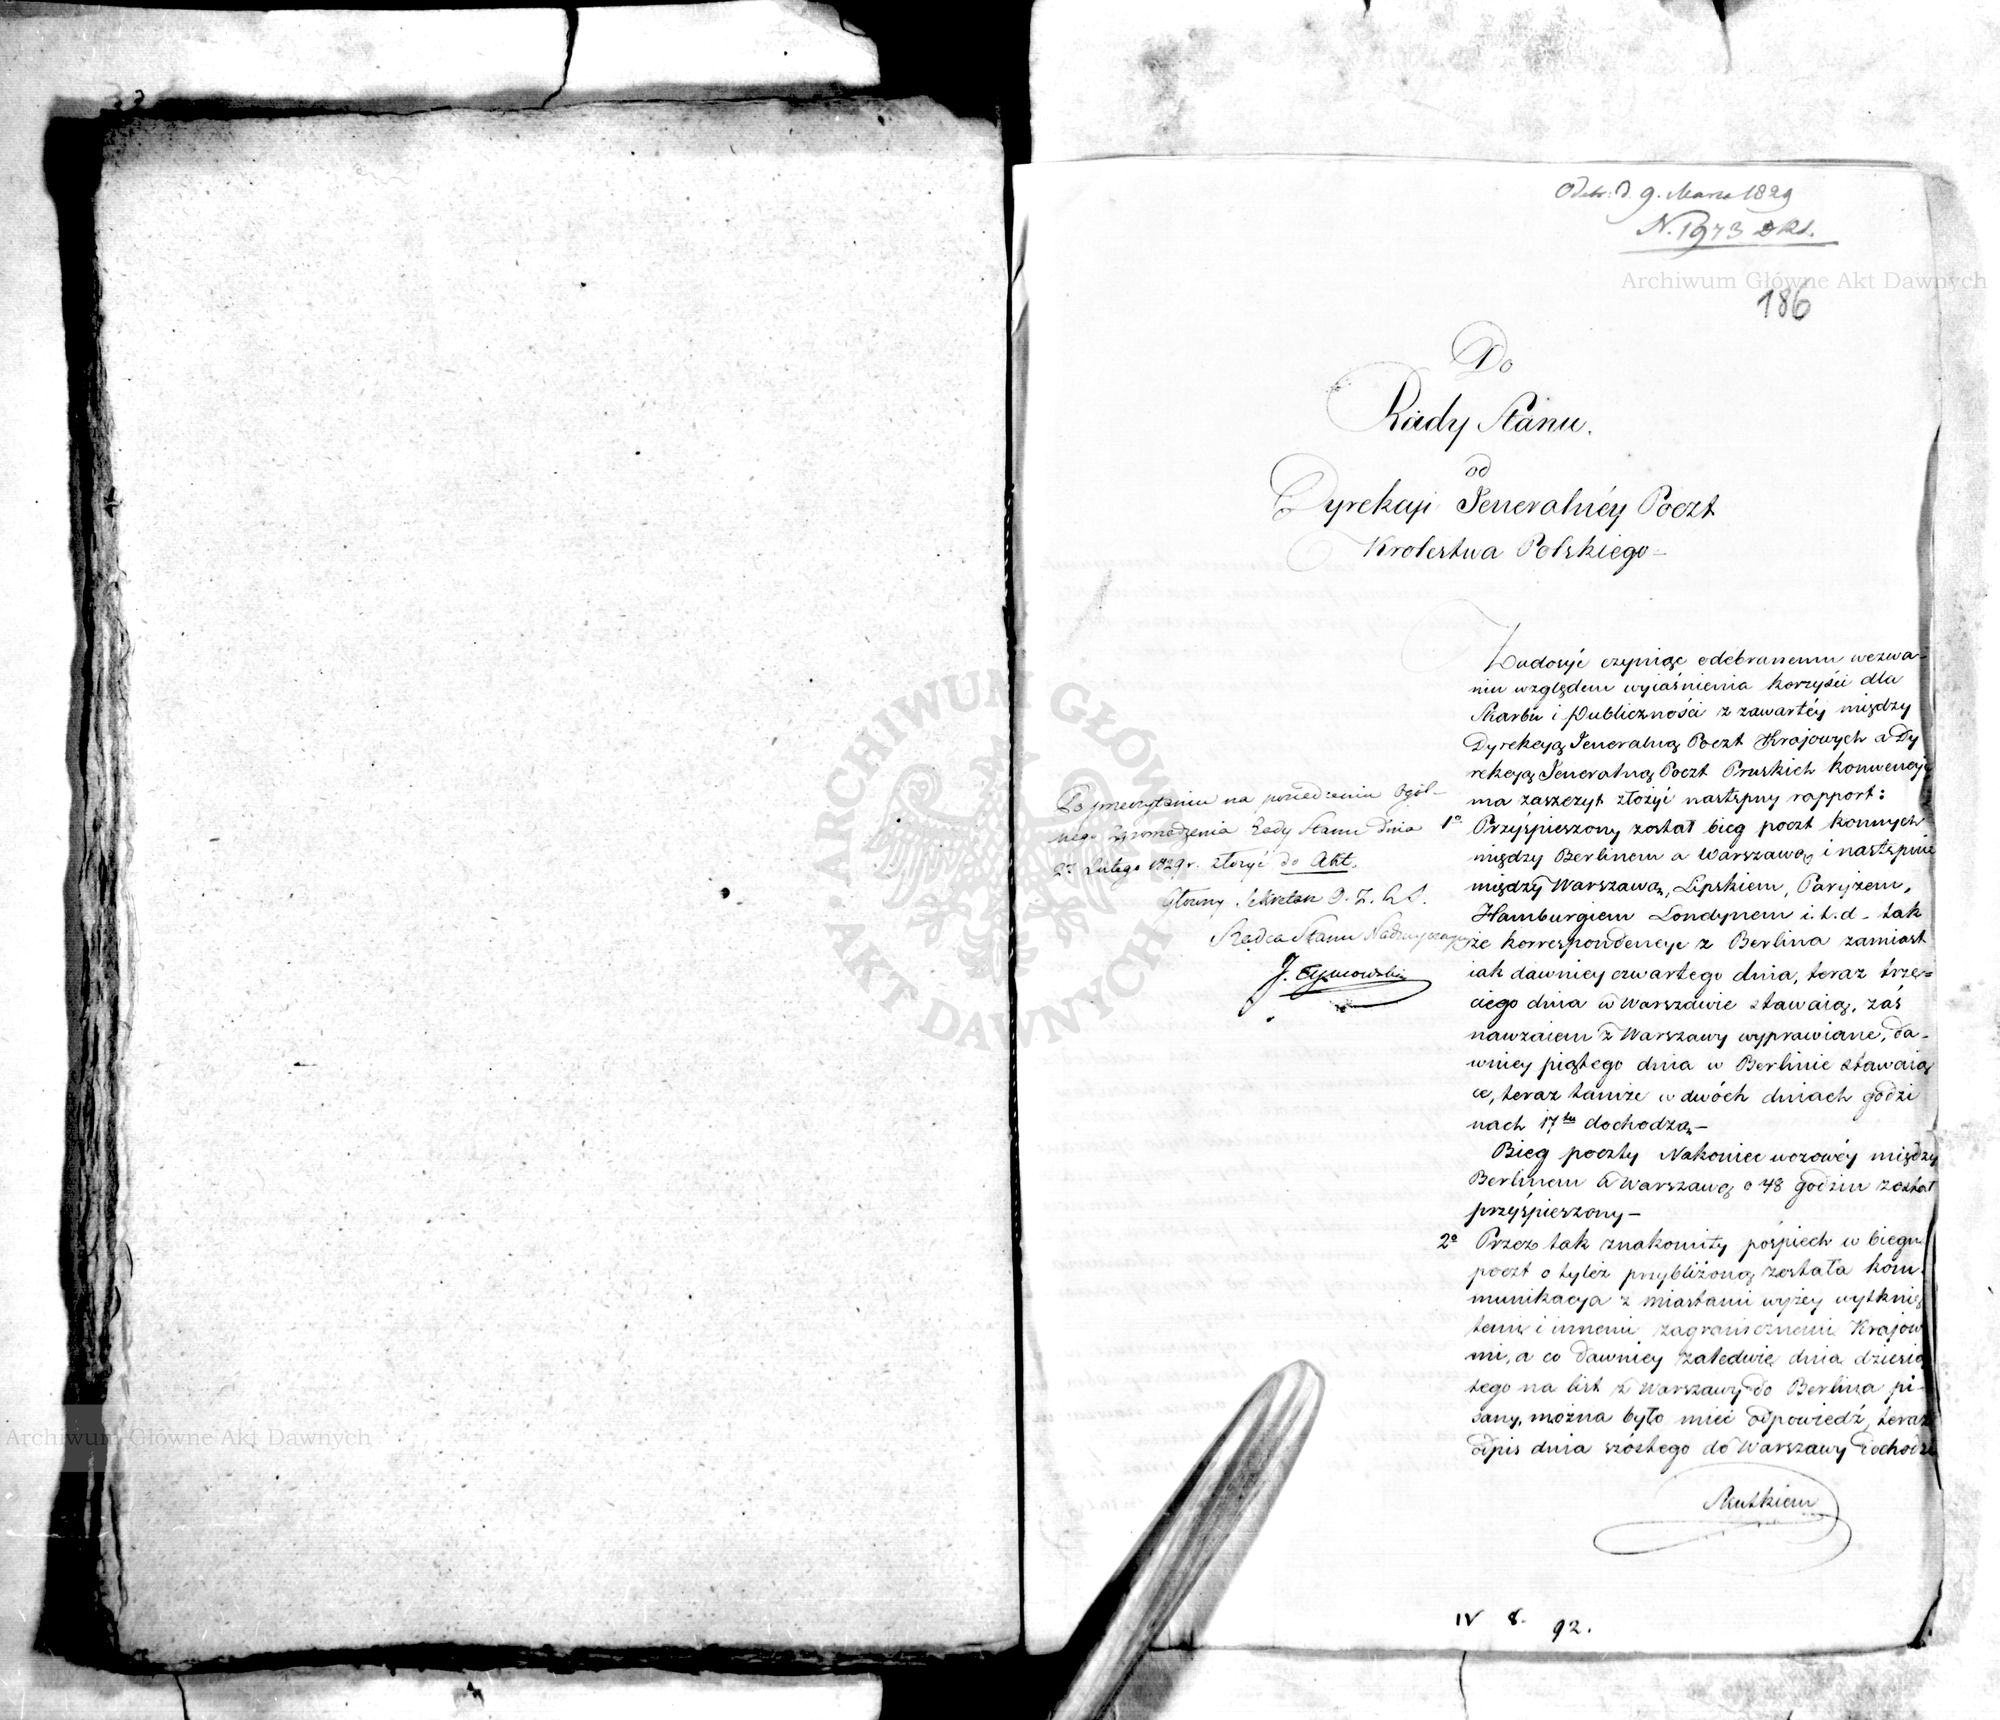 Odebr. d. 9. Marca 1829
N. 1973
Archiwum Główne Akt Dawnych
186
Do
Rady Stanu.
od
Dyrekcyi Jeneralnéy Poczt
Krolestwa Polskiego —
Zadosyć czyniąc odebranemu wezwa-
niu względem wyiaśnienia korzyści dla
Skarbu i Publiczności z zawartéy między
Dyrekcyą Jeneralną Poczt Krajowych a Dy
rekcyą Jeneralną Poczt Pruskich konwencyi
ma zaszczyt złożyć następny rapport:
1º Przyśpieszony został bieg poczt konnych
między Berlinem a Warszawą i następnie
między Warszawą, Lipskiem, Paryżem,
Hamburgiem Londynem i.t.d - tak
że korrespondencye z Berlina zamiast
iak dawniey czwartego dnia, teraz trze-
ciego dnia w Warszawie stawaią, zaś
nawzaiem z Warszawy wyprawiane, da-
wniey piątego dnia w Berlinie stawaią
ce, teraz tamże w dwóch dniach godzi
nach 17tu dochodzą —
Bieg poczty Nakoniec wozowéy między
Berlinem a Warszawą o 48 godzin został
przyśpieszony —
2º Przez tak znakomity pośpiech w biegu
poczt o tyleż przybliżoną została kom-
munikacya z miastami wyżey wytknię
temi i innemi zagranicznemi Krajow
mi, a co dawniey zaledwie dnia dziesią
tego na list z Warszawy do Berlina pi-
sany, można było mieć odpowiedź, teraz
odpis dnia szóstego do Warszawy dochodzi
Skutkiem
Po przeczytaniu na posiedzeniu Ogól-
nego Zgromadzenia Rady Stanu dnia
Lutego 1829 r. złożyć do Akt.
Główny Sekretarz
Radca Stanu Nadzwyczajny
J. Tymowski
IV 8. 92.
ARCHIWUM GŁÓWNE AKT DAWNYCH
Archiwum Główne Akt Dawnych